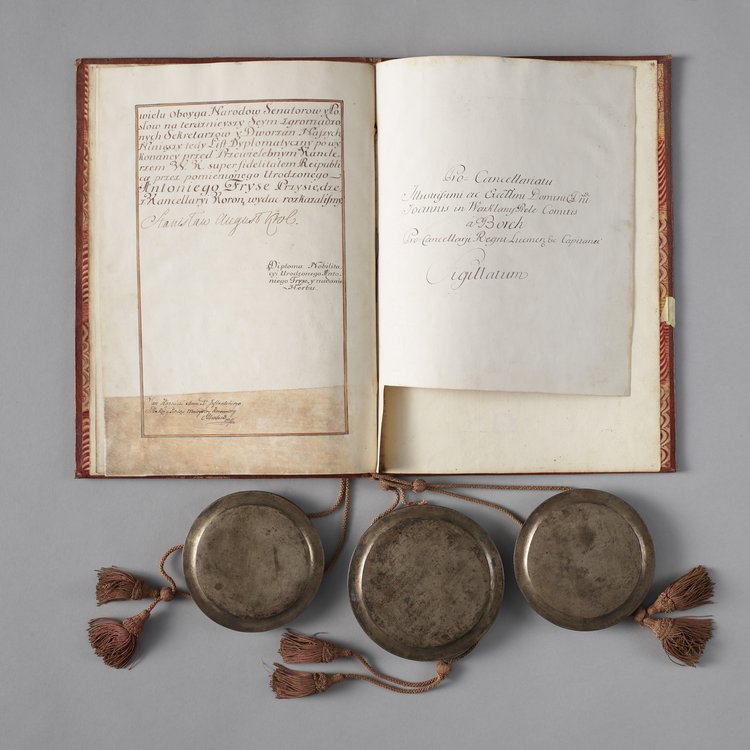 wielu Oboyga Narodow Senatorow y Po
slow na teraznieyszy Seym zgromadzo
nych Sekretarzow y Dworzan Naszych
Ninieyszy tedy List Dyplomatyczny po wy
konaney przed Przewielebnym Kancle
rzem W. K. super fidelitatem Reipubli
cæ przez pomienionego Urodzonego
Antoniego Fryse Przysiędze
z Kancellaryi Koron, wydac rozkazalismy
Stanisław August Krol.
Diploma Nobilita
cyi Urodzonego Anto
niego Fryse, y nadanie
Herbu.
Pro-Cancellariatu
Illustrissimi ac Excellmi Domini Dni
Ioannis in Warklang Prelz Comitis
a Borch
Pro-Cancellarij Regni Lucinen: &c Capitanei
Sigillatum